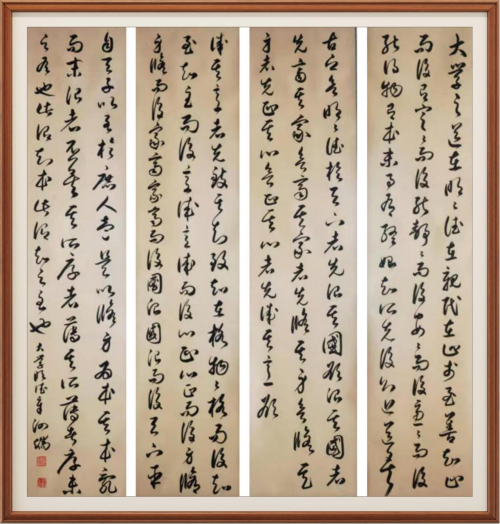 大学之道在明々德在親民在止於至善知止
而後有定々而後能靜々而後能安々而後能慮々而後
能得物有本末事有終始知所先後則近道矣
古之欲明々德於天下者先治其國欲治其國者
先齊其家欲齊其家者先脩其身欲脩其
身者先正其心欲正其心者先誠其意欲
誠其意者先致其知致知在格物々格而後知
至知至而後意誠意誠而後心正心正而後身脩
身脩而後家齊家齊而後國治國治而後天下平
自天子以至於庶人壹是以脩身為本其本亂
而末治者否矣其所厚者薄其所薄者厚未
之有也此謂知本此謂知之至也 大学明德章